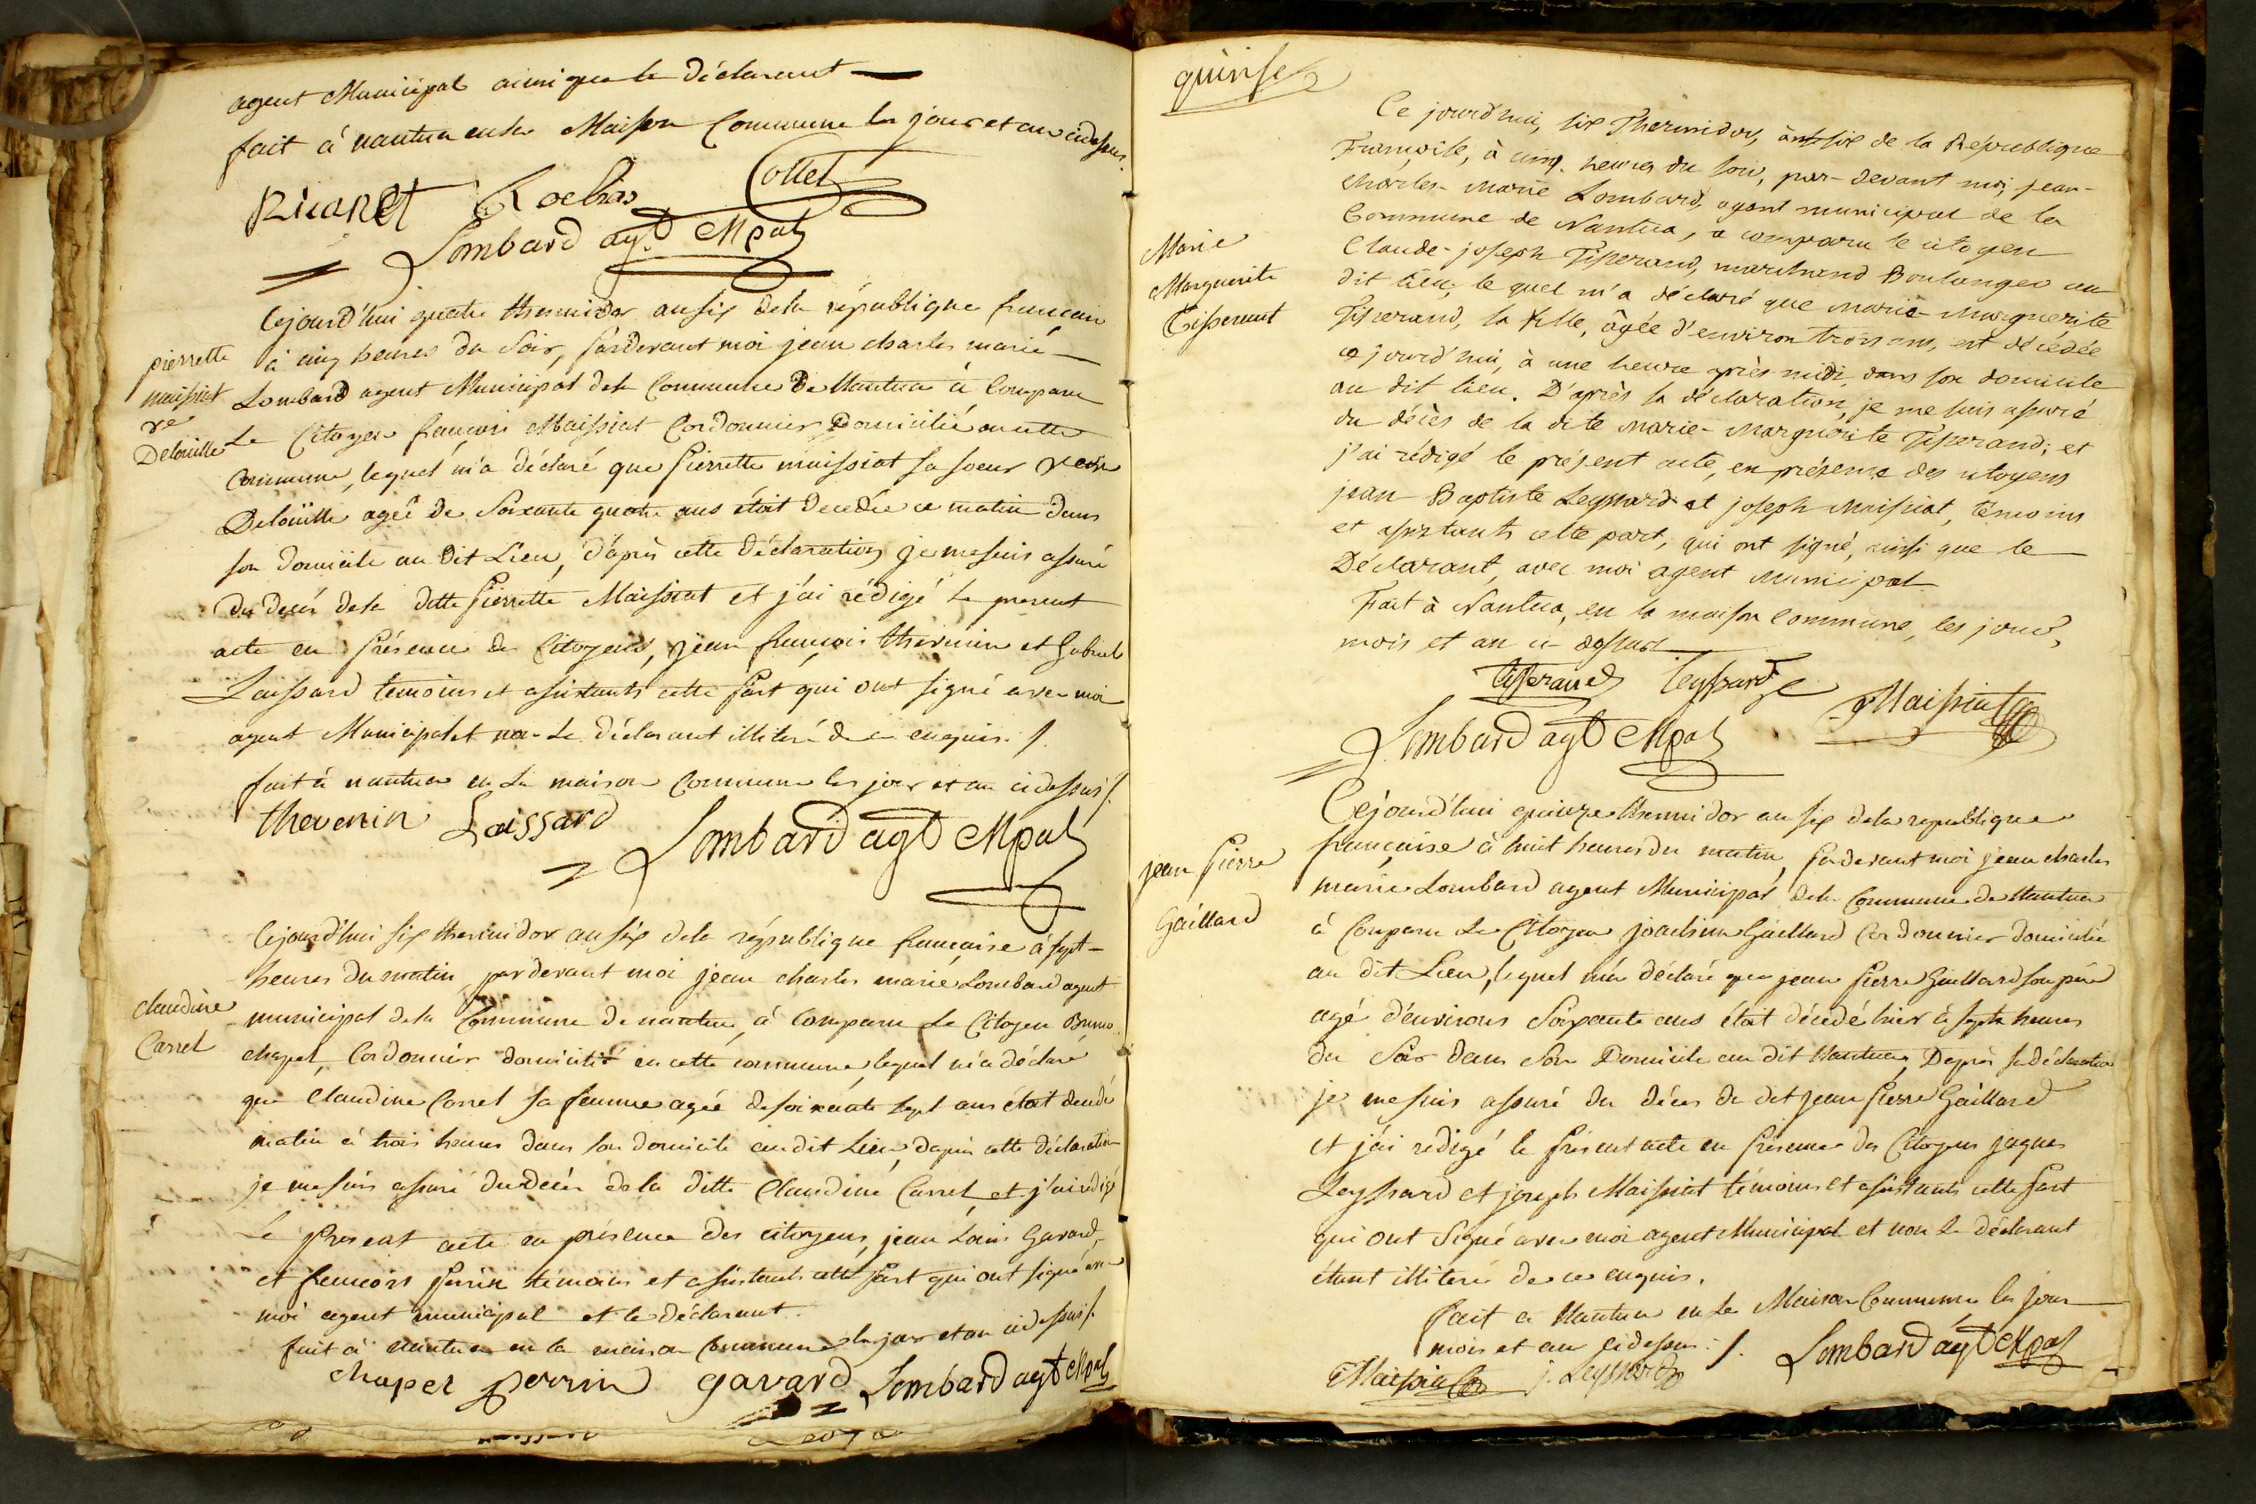 agent Municipal ainsi que le déclarant
fait à nantua en la Maison Commune les jour et an cidessus.
Ricanet Rochas Collet
Lombard agt Mpal
Cejourd'hui quatre thermidor an six de la république francaise
pierrette
maissiat
ve
Delouille
à cinq heures du Soir, pardevant moi jean charles marie
Lombard agent Municipal de la Commune De Nantua à Comparu
Le Citoyen françois Maissiat Cordonnier Domicilié en cette
Commune, lequel m'a déclaré que Pierrette maissiat sa soeur veuve
Delouille agée de Soixante quatre ans était decedée ce matin dans
son domicile au Dit Lieu, d'après cette déclaration je me suis assuré
du decés de la ditte Pierrette Maissiat et j'ai rédigé le present
acte en Présence des Citoyens, jean françois thevenin et Gabriel
Laissard témoins et assistants cette part qui ont signé avec moi
agent Municipal et non Le déclarant illiteré de ce enquis ./.
fait à nantua en La maison Commune les jour et an cidessus ./.
thevenin Laissard Lombard agt Mpal
Cejourd'hui six thermidor an six de la république française à sept
heures du matin par devant moi jean charles marie Lombard agent
claudine
Carrel
municipal de la Commune de nantua, à Comparu Le Citoyen Bruno
chapel, Cordonnier domicilié en cette commune, lequel m'a déclaré
que Claudine Carrel sa femme agée de soixante sept ans était decedé
matin à trois heures dans son domicile au dit Lieu, d'après cette déclaration
je me suis assuré du decés de la ditte Claudine Carrel et j'ai rédigé
Le Present acte en présence des citoyens, jean Louis Gavard,
et françois Perrin témoins et assistants cette part qui ont signé avec
moi agent municipal et le déclarant.
fait à nantua en la maison Commune les jour et an cidessus ./.
chapel perrin gavard Lombard agt Mpal
quinse
Ce jourd'hui, six Thermidor, an six de la République
Françoise, à cinq heures du soir, par-devant moi, jean-
charles-marie Lombard, agent municipal de la
Commune de Nantua, a comparu le citoyen
Marie
Marguerite
Tisserant
Claude-joseph Tisserand, marchand Boulanger au
dit lieu; le quel m'a déclaré que marie-marguerite
Tisserand, sa fille, âgée d'environ trois ans, est décédée
ce jourd'hui, à une heure après midi, dans son domicile
au dit lieu. D'après sa déclaration, je me suis assuré
du décès de la dite marie-marguerite Tisserand; et
j'ai rédigé le présent acte, en présence des citoyens
jean Baptiste Leyssard et joseph Maissiat, témoins
et assistants cette part, qui ont signé, ainsi que le
Déclarant, avec moi agent municipal
Fait à Nantua, en la maison Commune, les jour,
mois et an ci-dessus
tisserand Leyssard Maissiat
Lombard agt Mpal
Cejourd'hui quinze thermidor an six de la republique
jean Pierre
Gaillard
française à huit heures du matin, pardevant moi jean charles
marie Lombard agent Municipal de la Commune de Nantua
à Comparu Le Citoyen joachim Gaillard Cordonnier domicilié
au dit Lieu, lequel m'a déclaré que jean Pierre Gaillard son père
agé d'environs Soixante ans était décedé hier à sept heures
du Soir dans Son Domicile au dit Nantua, D'après sa déclaration
je me suis assuré du décès du dit jean Pierre Gaillard
et j'ai rédigé le présent acte en Présence des Citoyens jaques
Leyssard et joseph Maissiat témoins et assistants cette part
qui ont Signé avec moi agent Municipal et non Le déclarant
étant illiteré de ce enquis.
fait à Nantua en La Maison Commune les jour
mois et an cidessus ./.
Maissiat j. Leyssard Lombard agt Mpal